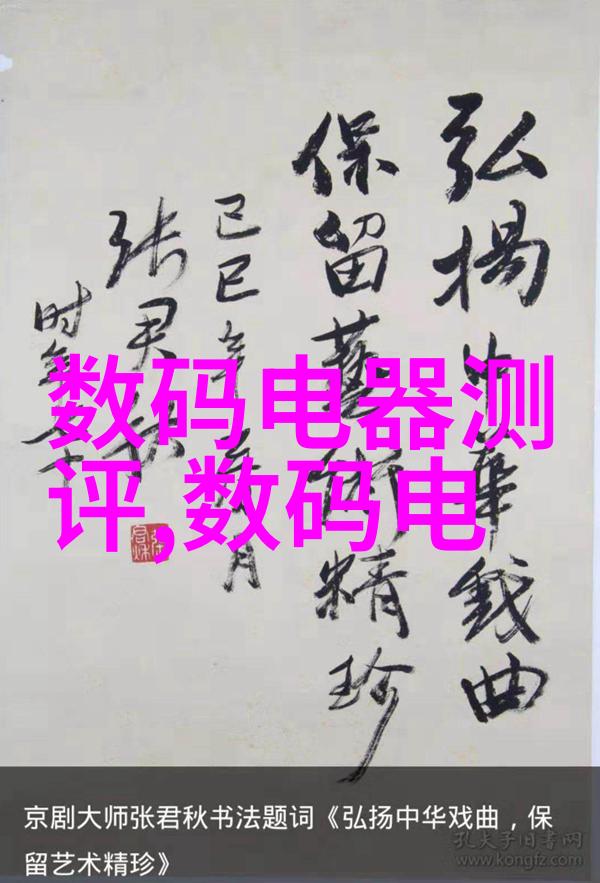 弘揚中華戲曲
保留藝術精珍
己巳年月
张君秋
时年七十
数码电器测
评,数码电
京剧大师张君秋书法题词《弘扬中华戏曲，保
留艺术精珍》
孔夫子旧书网
www.kongfz.com